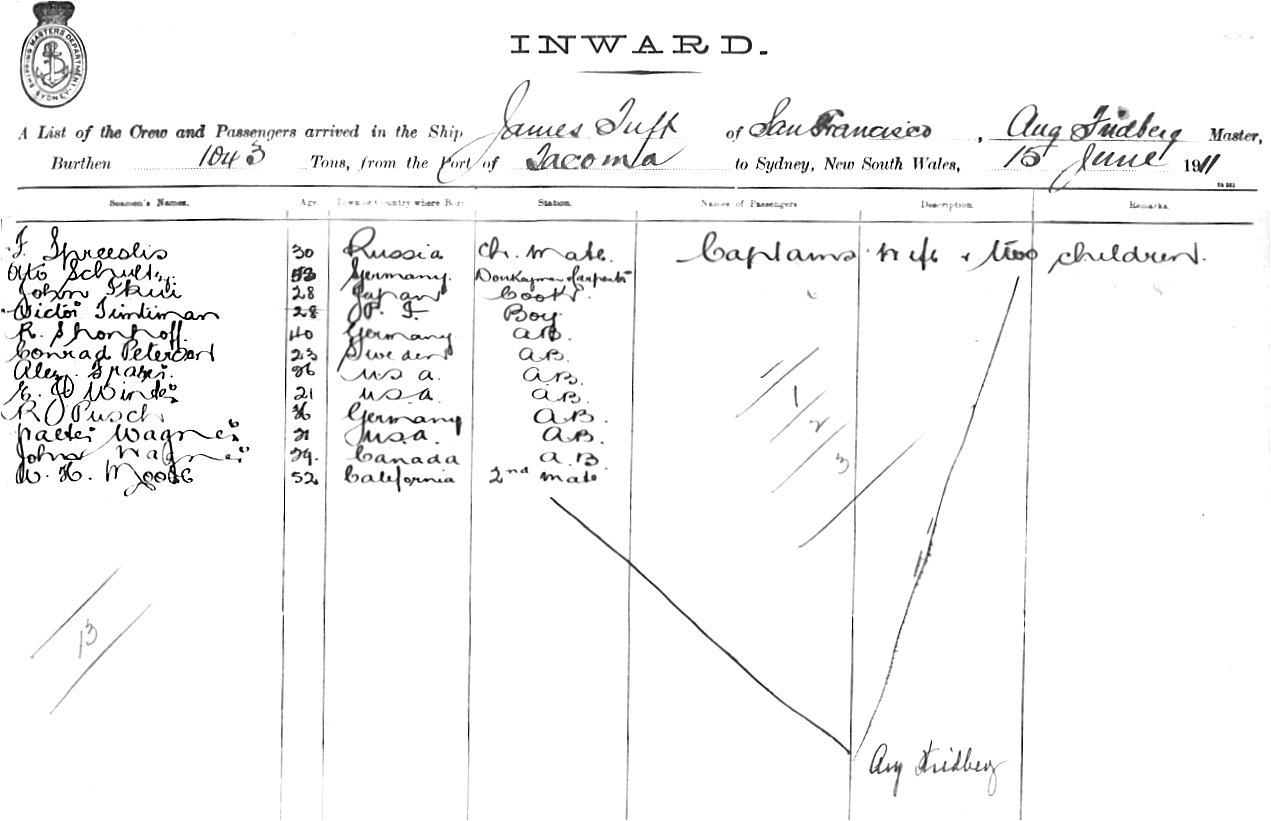 SHIPPING MASTERS DEPARTMENT SYDNEY
INWARD.
A List of the Crew and Passengers arrived in the Ship James Tuft of San Francisco, Aug Fridberg Master,
Burthen 1043 Tons, from the Port of Tacoma to Sydney, New South Wales, 15 June 1911
Seamen's Names. Age. Town or Country where Born Station. Names of Passengers Description. Remarks.
F. Spreeslis 30 Russia Ch. Mate. Captains wife & two children.
Otto Schultz 53 Germany. Donkeyman & Carpenter
John 28 Japan Cook.
Victor Timliman 28 P. I. Boy
R. Shonhoff. 40 Germany A.B.
Conrad Peterson 23 Sweden A.B.
Alex. Fraser. 26 U S A. A.B.
Winder 21 U S A. A.B.
R Pusch 36 Germany A.B.
Walter Wagner 21 U.S.A. A.B.
John Wagner 29. Canada A.B.
H. Moore 52 California 2nd Mate
1
2
3
13
Aug Fridberg